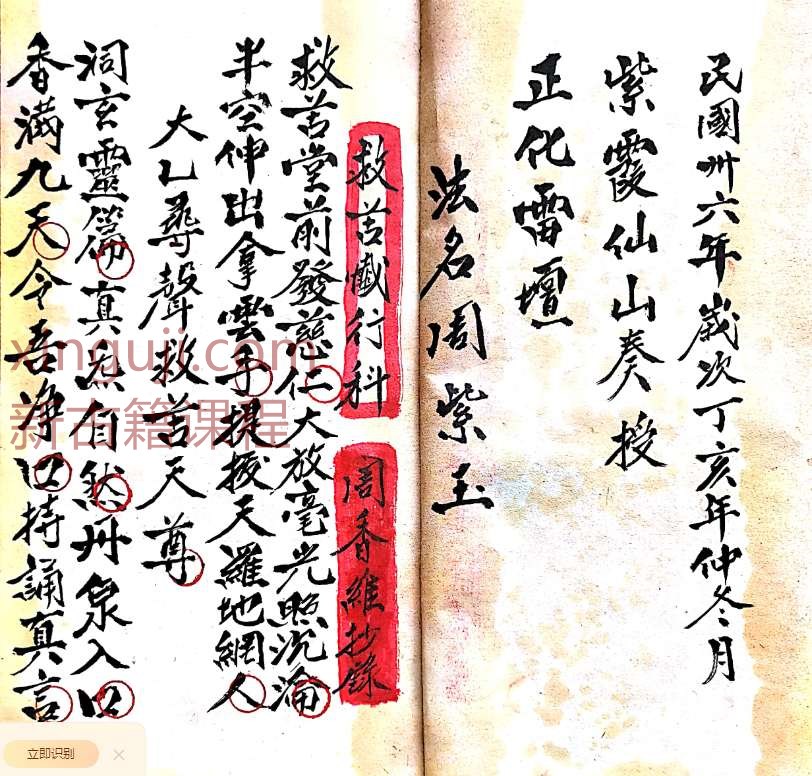 民國卅六年歲次丁亥年仲冬月
紫霞仙山奏授
正化雷壇
法名周紫玉
救苦懺行科 周香維抄錄
救苦堂前發慈仁大放毫光照沉淪
半空伸出拿雲手提拔天羅地網人
大乙尋聲救苦天尊
洞玄靈篇真炁自然丹泉入口
香滿九天令吾淨口持誦真言
xinguji.com
新古籍课程
立即识别